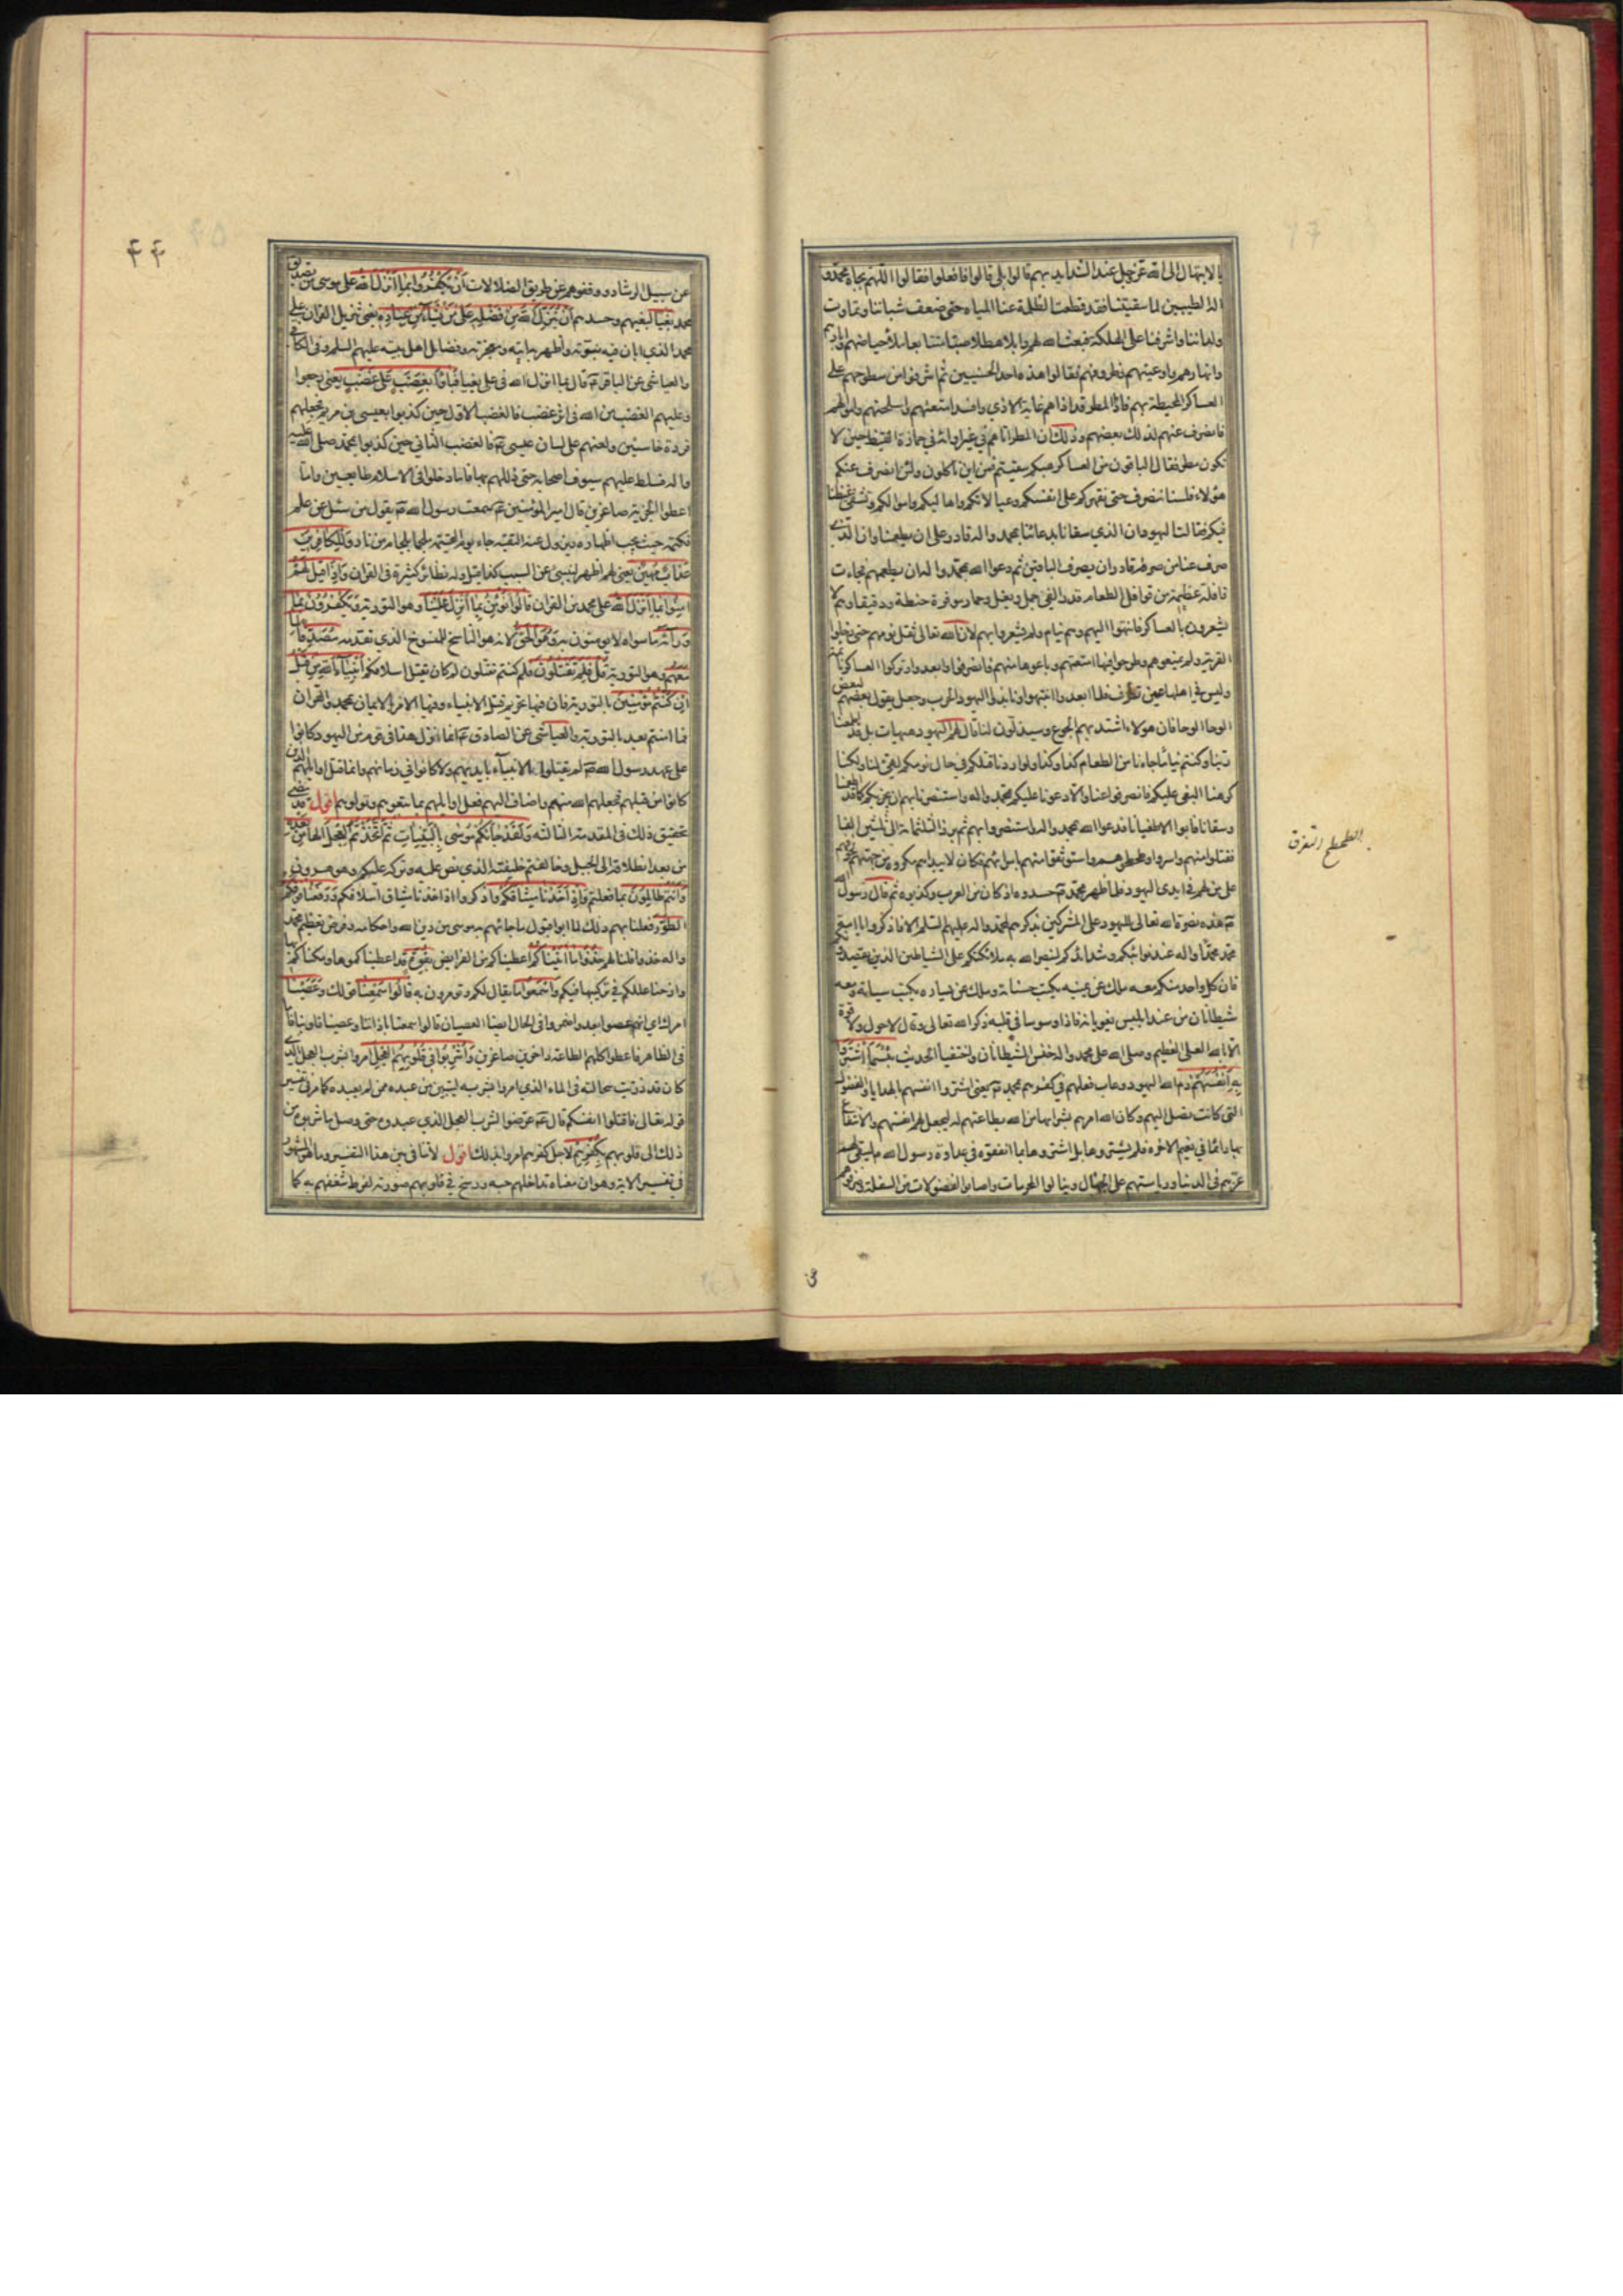 بالابتهال الى الله عز وجل عند الشدايد بهم قالوا بلى قالوا فافعلوا فقالوا اللهم بجاه محمد و
اله الطيبين لما سقيتنا فقد قطعت الظلمة عنا المياه حتى ضعف شباننا وتماوت
ولداننا واشرفنا على الهلكة فبعث الله لهم وابلا هطلا صبا متتابعا ملأ حياضهم وابارهم
وانهارهم واوعيتهم وظروفهم فقالوا هذه احدى الحسنيين ثم اشرفوا من سطوحهم على
العساكر المحيطة بهم فاذا المطر قد اذاهم غاية الاذى وافسد امتعتهم واسلحتهم واموالهم
فانصرف عنهم لذلك بعضهم وذلك ان المطر اتاهم في غير اوانه في حمارة القيظ حين لا
يكون مطر فقال الباقون من العساكر هبكم سقيتم فمن اين تأكلون ولئن انصرف عنكم
هؤلاء فلسنا ننصرف حتى نقهركم على انفسكم وعيالاتكم واهاليكم واموالكم ونشفي غيظنا
فيكم فقالت اليهود ان الذي سقانا بدعائنا بمحمد واله قادر على ان يطعمنا وان الذي
صرف عنا من صرفه قادر ان يصرف الباقين ثم دعوا الله بمحمد واله ان يطعمهم فجاءت
قافلة عظيمة من قوافل الطعام قدر الفي جمل وبغل وحمار موقرة حنطة ودقيقا وهم لا
يشعرون بالعساكر فانتهوا اليهم وهم نيام ولم يشعروا بهم لان الله تعالى ثقل نومهم حتى دخلوا
القرية ولم يمنعوهم وطرحوا فيها امتعتهم وباعوها منهم فانصرفوا وابعدوا وتركوا العساكر نائمة
وليس في اهلها عين تطرف فلما ابعدوا انتبهوا ونابذوا اليهود الحرب وجعل يقول بعضهم لبعض
الوحا الوحا فان هؤلاء اشتد بهم الجوع وسيذلون لنا قال لهم اليهود هيهات بل قد اطعمنا
ربنا وكنتم نياما جاءنا من الطعام كذا وكذا ولو اردنا قتلكم في حال نومكم لتهيأ لنا ولكنا
كرهنا البغي عليكم فانصرفوا عنا والا دعونا عليكم بمحمد واله واستنصرنا بهم ان يخزيكم كما قد اطعمنا
وسقانا فابوا الا طغيانا فدعوا الله بمحمد واله واستنصروا بهم ثم برز الثلثمائة الى ثلثين الفا
فقتلوا منهم واسروا وطحطحوهم واستوثقوا منهم باسرائهم فكان لا ينداهم مكروه من جهتهم لخوفهم
على من لهم في ايدى اليهود فلما ظهر محمد ص حسدوه اذ كان من العرب وكذبوه ثم قال رسول الله
ص هذه نصرة الله تعالى لليهود على المشركين بذكرهم لمحمد واله عليهم السلم الا فاذكروا يا امة
محمد محمدا واله عند نوائبكم وشدائدكم لينصر الله به ملائكتكم على الشياطين الذين يقصدونكم
فان كل واحد منكم معه ملك عن يمينه يكتب حسناته وملك عن يساره يكتب سيئاته ومعه
شيطانان من عند ابليس يغويانه فاذا وسوسا في قلبه ذكر الله تعالى وقال لا حول ولا قوة
الا بالله العلى العظيم وصلى الله على محمد واله خنس الشيطانان واختفيا الحديث بئسما اشتروا
به انفسهم ذم الله اليهود وعاب فعلهم في كفرهم بمحمد ص يعنى اشتروا انفسهم بالهدايا والفضول
التى كانت تصل اليهم وكان الله امرهم بشرائها من الله بطاعتهم له ليجعل لهم انفسهم والانتفاع
بها دائما في نعيم الاخرة فلم يشتروها بل اشتروها بما انفقوه في عداوة رسول الله ص ليبقى لهم
عزهم في الدنيا ورياستهم على الجهال وينالوا المحرمات واصابوا الفضولات من السفلة وصرفوهم
الطحطح التفرق
۴۴
عن سبيل الرشاد ووقفوهم عن طريق الضلالات أن يكفروا بما أنزل الله على موسى من تصديق
محمد بغيا لبغيهم وحسدهم أن ينزل الله من فضله على من يشاء من عباده يعنى تنزيل القرآن على
محمد الذي ابان فيه نبوته واظهر به ايته ومعجزته وفضايل اهل بيته عليهم السلم وفى الكافي
والعياشي عن الباقر ع قال بما انزل الله في على بغيا فباؤا بغضب على غضب يعنى رجعوا
وعليهم الغضب من الله في اثر غضب فالغضب الاول حين كذبوا بعيسى بن مريم فجعلهم
قردة خاسئين ولعنهم على لسان عيسى ع والغضب الثاني حين كذبوا بمحمد صلى الله عليه
واله فسلط عليهم سيوف اصحابه حتى ذللهم بها فاما دخلوا في الاسلام طائعين واما
اعطوا الجزية صاغرين قال امير المؤمنين ع سمعت رسول الله ص يقول من سئل عن علم
فكتمه حيث يجب اظهاره ويزول عنه التقية جاء يوم القيمة ملجما بلجام من نار وللكافرين
عذاب مهين يعنى لهم اظهر لينبئ عن السبب كذا قيل وله نظائر كثيرة في القرآن وإذا قيل لهم
آمنوا بما أنزل الله على محمد من القرآن قالوا نؤمن بما أنزل علينا وهو التورية ويكفرون بما
وراءه ما سواه لا يؤمنون به وهو الحق لانه هو الناسخ للمنسوخ الذي تقدمه مصدقا لما
معهم وهو التورية قل فلم تقتلون فلم كنتم تقتلون لم كان يقتل اسلافكم أنبياء الله من قبل
ان كنتم مؤمنين بالتورية فان فيها تحريم قتل الانبياء وفيها الامر بالايمان بمحمد والقرآن
فما امنتم بعد بالتورية والعياشي عن الصادق ع انما انزل هذا في قوم من اليهود وكانوا
على عهد رسول الله ص لم يقتلوا الانبياء بايديهم ولا كانوا في زمانهم وانما قتل اوايلهم الذين
كانوا من قبلهم فجعلهم الله منهم واضاف اليهم فعل اوايلهم بما تبعوهم وتولوهم اقول قد مضى
تحقيق ذلك في المقدمة الثالثة ولقد جاءكم موسى بالبينات ثم اتخذتم العجل الها من بعده
من بعد انطلاقه الى الجبل وخالفتم خليفته الذي نص عليه وتركه عليكم وهو هرون
وأنتم ظالمون بما فعلتم وإذ أخذنا ميثاقكم واذكروا اذ اخذنا ميثاق اسلافكم ورفعنا فوقكم
الطور فعلنا بهم ذلك لما ابوا قبول ما جائهم به موسى من دين الله واحكامه وفرض تعظيم محمد
واله خذوا قلنا لهم خذوا ما اتيناكم اعطيناكم من الفرايض بقوة قد اعطيناكموها ومكناكم بها
وازحنا عللكم في تركيبها فيكم واسمعوا ما يقال لكم وتؤمرون به قالوا سمعنا قولك وعصينا
امرك اي انهم عصوا بعد واضمروا في الحال ايضا العصيان قالوا سمعنا باذاننا وعصينا بقلوبنا فاما
في الظاهر فاعطوا كلهم الطاعة داخرين صاغرين واشربوا في قلوبهم العجل امروا بشرب العجل الذي
كان قد ذريت سحالته في الماء الذي امروا بشربه ليتبين من عبده ممن لم يعبده كما مر في تفسير
قوله تعالى فاقتلوا انفسكم قال ع عرضوا لشرب العجل الذي عبدوه حتى وصل ما شربوه من
ذلك الى قلوبهم بكفرهم لاجل كفرهم امروا بذلك اقول لا تنافى بين هذا التفسير وما هو المشهور
في تفسير الاية وهو ان معناه تداخلهم حبه ورسخ في قلوبهم صورته لفرط شغفهم به كما